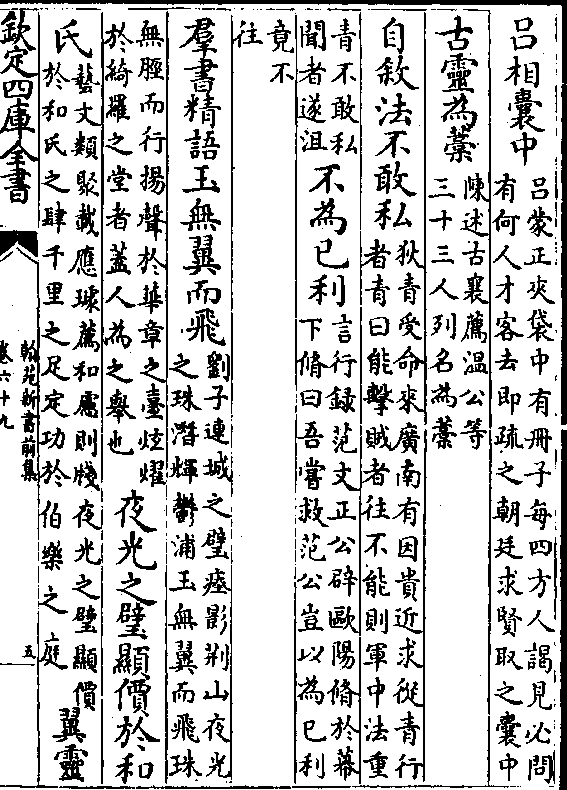 呂相囊中 呂蒙正夾袋中有冊子每四方人謁見必問
有何人才客去即疏之朝廷求賢取之囊中
古靈為藁 陳述古襄薦溫公等
三十三人列名為藁
自敘法不敢私 狄青受命來廣南有因貴近求從青行
者青曰能擊賊者往不能則軍中法重
青不敢私
聞者遂沮 不為已利 言行録范文正公辟歐陽脩於幕
下脩曰吾嘗救范公豈以為已利
竟不
往
羣書精語玉無翼而飛 劉子連城之璧瘞影荆山夜光
之珠潛輝鬱浦玉無翼而飛珠
無脛而行揚聲於華章之臺炫燿
於綺羅之堂者蓋人為之舉也 夜光之璧顯價於和
氏 藝文類聚載應璩薦和慮則牋夜光之璧顯價
於和氏之肆千里之足定功於伯樂之庭 翼靈
欽定四庫全書
翰苑新書前集
卷六十九
五